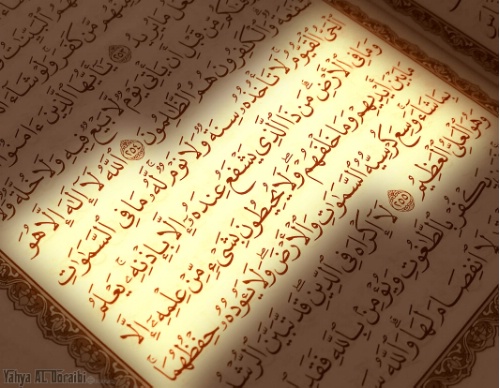 ٱلْبَيِّنَٰتُ
مَّن كَفَرَ وَلَوْ شَآءَ
يَفْعَلُ مَا يُرِيدُ ٢٥٣ يَٰٓأَيُّهَا ٱلَّذِينَ ءَامَنُوٓا۟
مِّن قَبْلِ أَن يَأْتِىَ يَوْمٌ لَّا بَيْعٌ فِيهِ وَلَا خُلَّةٌ وَلَا
وَٱلْكَٰفِرُونَ هُمُ ٱلظَّٰلِمُونَ ٢٥٤ ٱللَّهُ لَآ إِلَٰهَ إِلَّا هُوَ
ٱلْحَىُّ ٱلْقَيُّومُ لَا تَأْخُذُهُۥ سِنَةٌ وَلَا نَوْمٌ لَّهُۥ مَا فِى ٱلسَّمَٰوَٰتِ
وَمَا فِى ٱلْأَرْضِ مَن ذَا ٱلَّذِى يَشْفَعُ عِندَهُۥٓ إِلَّا بِإِذْنِهِۦ يَعْلَمُ
مَا بَيْنَ أَيْدِيهِمْ وَمَا خَلْفَهُمْ وَلَا يُحِيطُونَ بِشَىْءٍ مِّنْ عِلْمِهِۦٓ إِلَّا
بِمَا شَآءَ وَسِعَ كُرْسِيُّهُ ٱلسَّمَٰوَٰتِ وَٱلْأَرْضَ وَلَا يَـُٔودُهُۥ حِفْظُهُمَا
وَهُوَ ٱلْعَلِىُّ ٱلْعَظِيمُ ٢٥٥ لَآ إِكْرَاهَ فِى ٱلدِّينِ قَد تَّبَيَّنَ ٱلرُّشْدُ
يَكْفُرْ بِٱلطَّٰغُوتِ وَيُؤْمِنۢ بِٱللَّهِ فَقَدِ
لَا ٱنفِصَامَ لَهَا وَٱللَّهُ
Yahya AL Doraibi